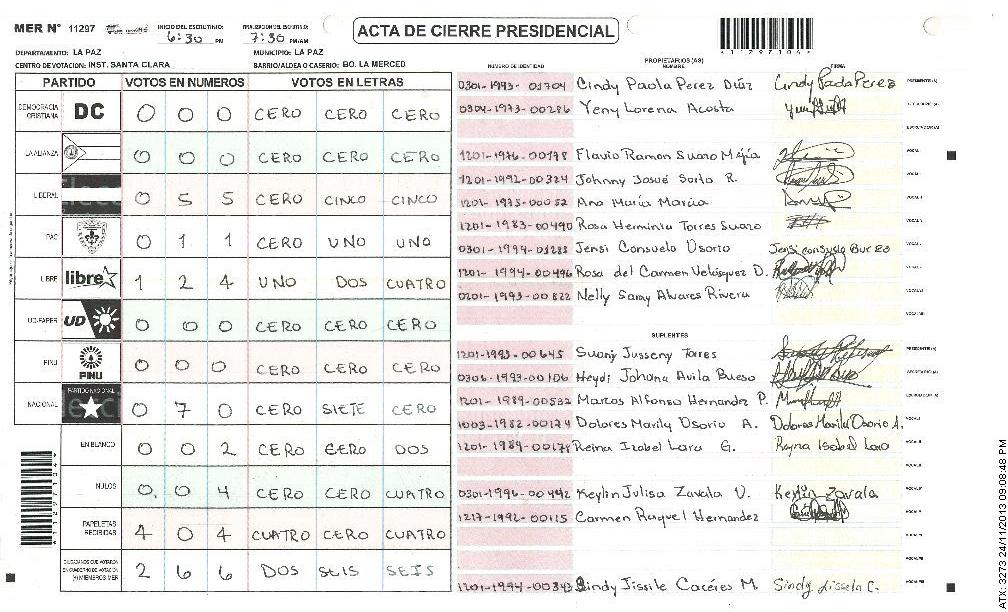 MER N° 11297 INICIO DEL ESCRUTINIO: 6:30 PM FINALIZACION DEL ESCRUTINIO: 7:30 PM/AM
ACTA DE CIERRE PRESIDENCIAL
DEPARTAMENTO: LA PAZ MUNICIPIO: LA PAZ
CENTRO DE VOTACION: INST. SANTA CLARA BARRIO/ALDEA O CASERIO: BO. LA MERCED
PARTIDO VOTOS EN NUMEROS VOTOS EN LETRAS
DEMOCRACIA CRISTIANA DC 0 0 0 CERO CERO CERO
LA ALIANZA 0 0 0 CERO CERO CERO
LIBERAL 0 5 5 CERO CINCO CINCO
PAC 0 1 1 CERO UNO UNO
LIBRE libre 1 2 4 UNO DOS CUATRO
UD-FAPER UD 0 0 0 CERO CERO CERO
PINU PINU 0 0 0 CERO CERO CERO
NACIONAL PARTIDO NACIONAL 0 7 0 CERO SIETE CERO
EN BLANCO 0 0 2 CERO CERO DOS
NULOS 0 0 4 CERO CERO CUATRO
PAPELETAS RECIBIDAS 4 0 4 CUATRO CERO CUATRO
CIUDADANOS QUE VOTARON EN CUADERNO DE VOTACION (+) MIEMBROS MER 2 6 6 DOS SEIS SEIS
NUMERO DE IDENTIDAD PROPIETARIOS (AS) NOMBRE FIRMA
0301-1993-01704 Cindy Paola Perez Díaz Cindy Paola Perez PRESIDENTE (A)
0304-1973-00286 Yeny Lorena Acosta SECRETARIO (A)
ESCRUTADOR (A)
1201-1976-00178 Flavio Ramon Suazo Mejía VOCAL I
1201-1992-00324 Johnny Josué Sorto R.
1201-1975-00052 Ana María Marcia
1201-1983-00490 Rosa Herminia Torres Suazo
0301-1994-01288 Jensi Consuelo Osorio
1201-1994-00496 Rosa del Carmen Velásquez D.
0201-1993-00822 Nelly Samy Alvares Rivera
SUPLENTES
1201-1993-00645 Suany Jusseny Torres PRESIDENTE (A)
0306-1993-00106 Heydi Johana Avila Bueso SECRETARIO (A)
1201-1989-00522 Marcos Alfonso Hernandez P. ESCRUTADOR (A)
1003-1982-00124 Dolores Marily Osorio A. Dolores Marily Osorio A.
1201-1989-00179 Reina Izabel Lara G. Reyna Isabel Lara
0301-1996-00442 Keylin Julisa Zavala V. Keylin Zavala
1217-1992-00115 Carmen Raquel Hernandez
1201-1994-00343 Sindy Jissile Cacéres M. Sindy Jissela C.
ATX-3273 24/11/2013 09:08:48 PM